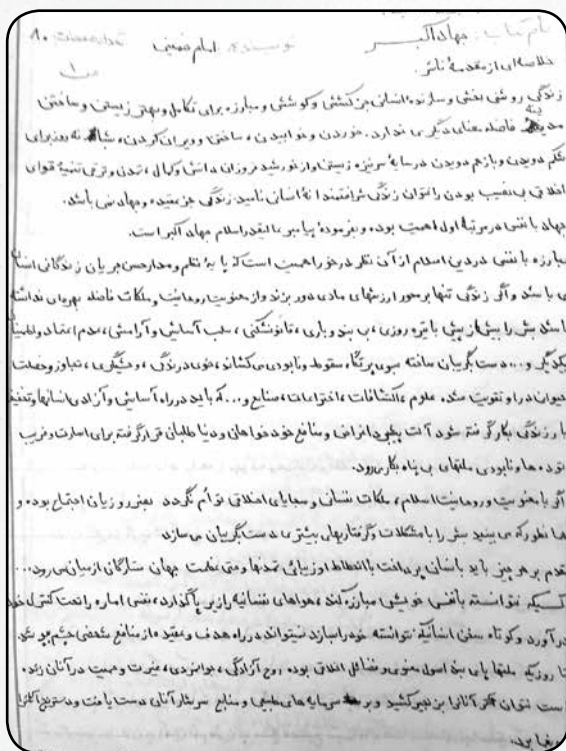 نام کتاب: جهاد اکبر نویسنده: امام خمینی تعداد صفحات ۸۰
ص ۱
خلاصه ای از مقدمهٔ ناشر.
زندگی روشنی بخش و سازندهٔ انسانی جز کشش و کوشش و مبارزه برای تکامل و بهتر زیستن و ساختن
مدینه فاضله معنای دیگری ندارد. خوردن و خوابیدن، ساختن و ویران کردن، شبانه روز برای
شکم دویدن و باز هم دویدن در سایهٔ سرنیزه زیستن و از خورشید فروزان دانش و کمال، تمدن و ترقی تغذیهٔ قوای
اخلاقی بی نصیب بودن را نتوان زندگی شرافتمندانهٔ انسانی نامید. زندگی جز عقیده و جهاد نمی باشد.
جهاد با نفس در مرتبهٔ اول اهمیت بوده و بفرمودهٔ پیامبر عالیقدر اسلام جهاد اکبر است.
مبارزه با نفس در دین اسلام از آن نظر در خور اهمیت است که پایهٔ نظم و مدار حسن جریان زندگانی انسان
می باشد و اگر زندگی تنها بر محور ارزشهای مادی دور بزند و از معنویت روحانیت و ملکات فاضله بهره ای نداشته
باشد بشر را بیش از پیش با تیره روزی، بی بند و باری، قانونشکنی، سلب آسایش و آرامش، عدم اعتماد و اطمینان
یکدیگر و... دست بگریبان ساخته بسوی پرتگاه سقوط و نابودی می کشاند، خوی درندگی، وحشیگری، تجاوز و خصلت
حیوانی در او تقویت شده. علوم، اکتشافات، اختراعات، صنایع و... که باید در راه آسایش و آزادی انسانها و
با زندگی بکار گرفته شود آلت پیشبرد اغراض و منافع خودخواهان و دنیا طلبان قرار گرفته برای اسارت و فریب
توده ها و نابودی ملتهای بی پناه بکار می رود.
اگر با معنویت و روحانیت اسلام، ملکات نفسانی و سجایای اخلاقی توأم نگردد بضرر و زیان اجتماع بوده و
همانطور که می بینید بشر را با مشکلات و گرفتاریهای بیشتری دست بگریبان می سازد
مقدم بر هر چیز باید بانسان پرداخت با انحطاط او زیبائی تمدنها و حتی عظمت جهان ستارگان از میان می رود...
کسیکه نتوانسته با نفس خویش مبارزه کند، هواهای نفسانیه را زیر پا گذارد، نفس اماره را تحت کنترل خود
درآورد و کوتاه سخن انسانیکه نتوانسته خود را بسازد نمیتواند در راه هدف و عقیده از منافع شخصی چشم بپوشد.
تا روزیکه ملتها پای بند اصول معنوی و فضائل اخلاقی بوده. روح آزادگی، جوانمردی، غیرت و حمیت در آنان زنده
است نتوان آنانرا بزنجیر کشید و بر سرمایه های طبیعی و منابع سرشار آنان دست یافت و دسترنج آنانرا
بیغما برد.